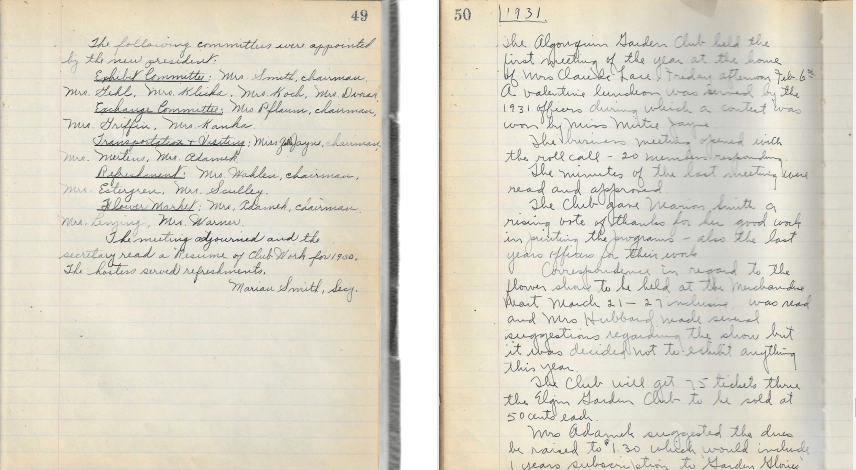 49
The following committees were appointed
by the new president:
Exhibit Committee: Mrs. Smith, chairman,
Mrs. Gehl, Mrs. Klicke, Mrs. Koch, Mrs.
Exchange Committee: Mrs Pflaum, chairman,
Mrs. Griffin, Mrs. Kamka.
Transportation & Visiting: Mrs Jayne, chairman,
Mrs. Mertens, Mrs. Adamek
Refreshment: Mrs. Wahlen, chairman,
Mrs. Estergren, Mrs. Sculley.
Flower Market: Mrs. Adamek, chairman
Mrs. Mrs. Warner.
The meeting adjourned and the
secretary read a Resume of Club Work for 1930.
The hostess served refreshments.
Marian Smith, Secy.
50
1931
The Algonquin Garden Club held the
first meeting of the year at the home
of Mrs Claude Friday afternoon, Feb. 6th
A valentine luncheon was served by the
1931 officers during which a contest was
won by Miss Jayne.
The business meeting opened with
the roll call - 20 members responding.
The minutes of the last meeting were
read and approved
The Club gave Marian Smith a
rising vote of thanks for her good work
in printing the programs - also the last
years officers for their work
Correspondence in regard to the
flower show to be held at the Merchandise
Mart March 21 - 27 inclusive, was read
and Mrs Hubbard made several
suggestions regarding the show but
it was decided not to exhibit anything
this year.
The Club will get 75 tickets thru
the Elgin Garden Club to be sold at
50 cents each.
Mrs Adamek suggested the dues
be raised to $1.30 which would include
1 years subscription to Garden Glories